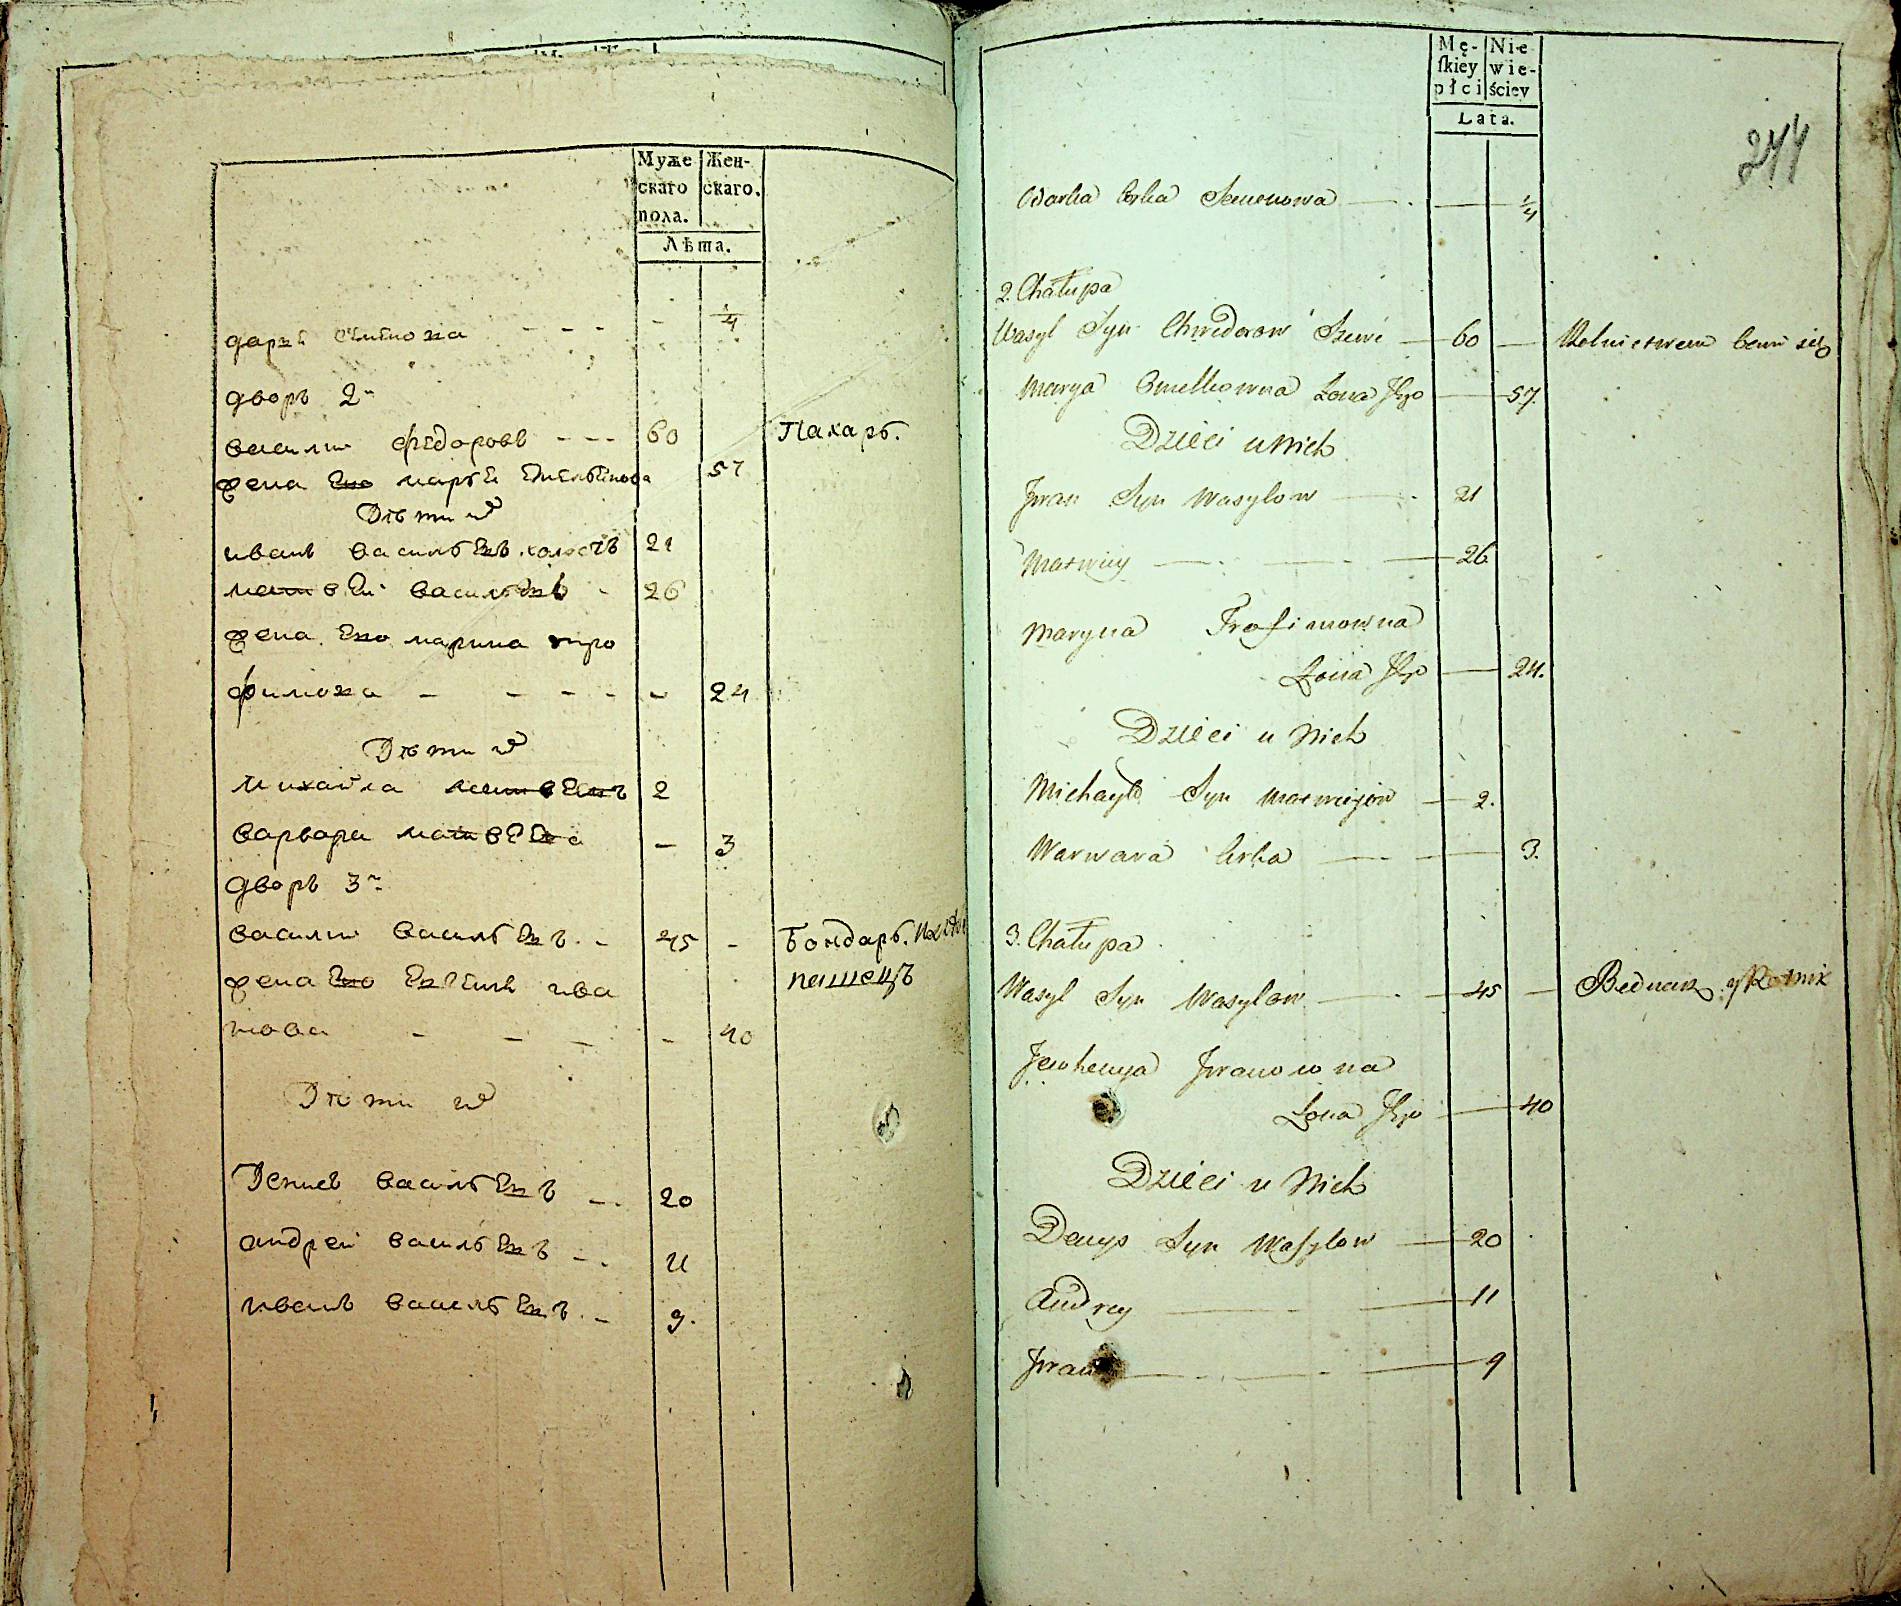 Муже
скаго
пола.
Жен-
скаго.
Лѣта.
дарья семионова - - - - 1/4
дворъ 2й
василий федоровъ - - - 60 Пахарь.
жена Ево марья Емельянова 57
Дѣти их
иванъ васильевъ холостъ 21
матвей васильевъ - 26
жена Ево марина тро
фимова - - - - - 24
Дѣти их
михайла матвеевъ 2
варвара матвеева - 3
дворъ 3й
василий васильевъ - 45 - Бондарь.
жена Ево Евгения ива
нова - - - - 40
Дѣти их
Денисъ васильевъ - 20
андрей васильевъ - 11
иванъ васильевъ - 9.
Mę-
skiey
płci
Nie
wie-
ściey
Lata.
244
Corka Semenowa — — 1/4
2. Chałupa
Wasyl Syn Chwedorow — 60 — Rolnictwem bawi się
Marya Omelkowna Zona Jego — 57.
Dzieci u Nich
Jwan Syn Wasylow — 21
Matwiey — — — 26
Maryna Trofimowna
Zona Jego — 24.
Dzieci u Nich
Michayło Syn Matwiejow — 2.
Warwara Corka — — 3.
3. Chałupa
Wasyl Syn Wasylow — 45 — Bednarz y Rolnik
Jewhenya Jwanowna
Zona Jego — 40
Dzieci u Nich
Denys Syn Wasylow — 20
Andrey — — 11
Jwan — — 9